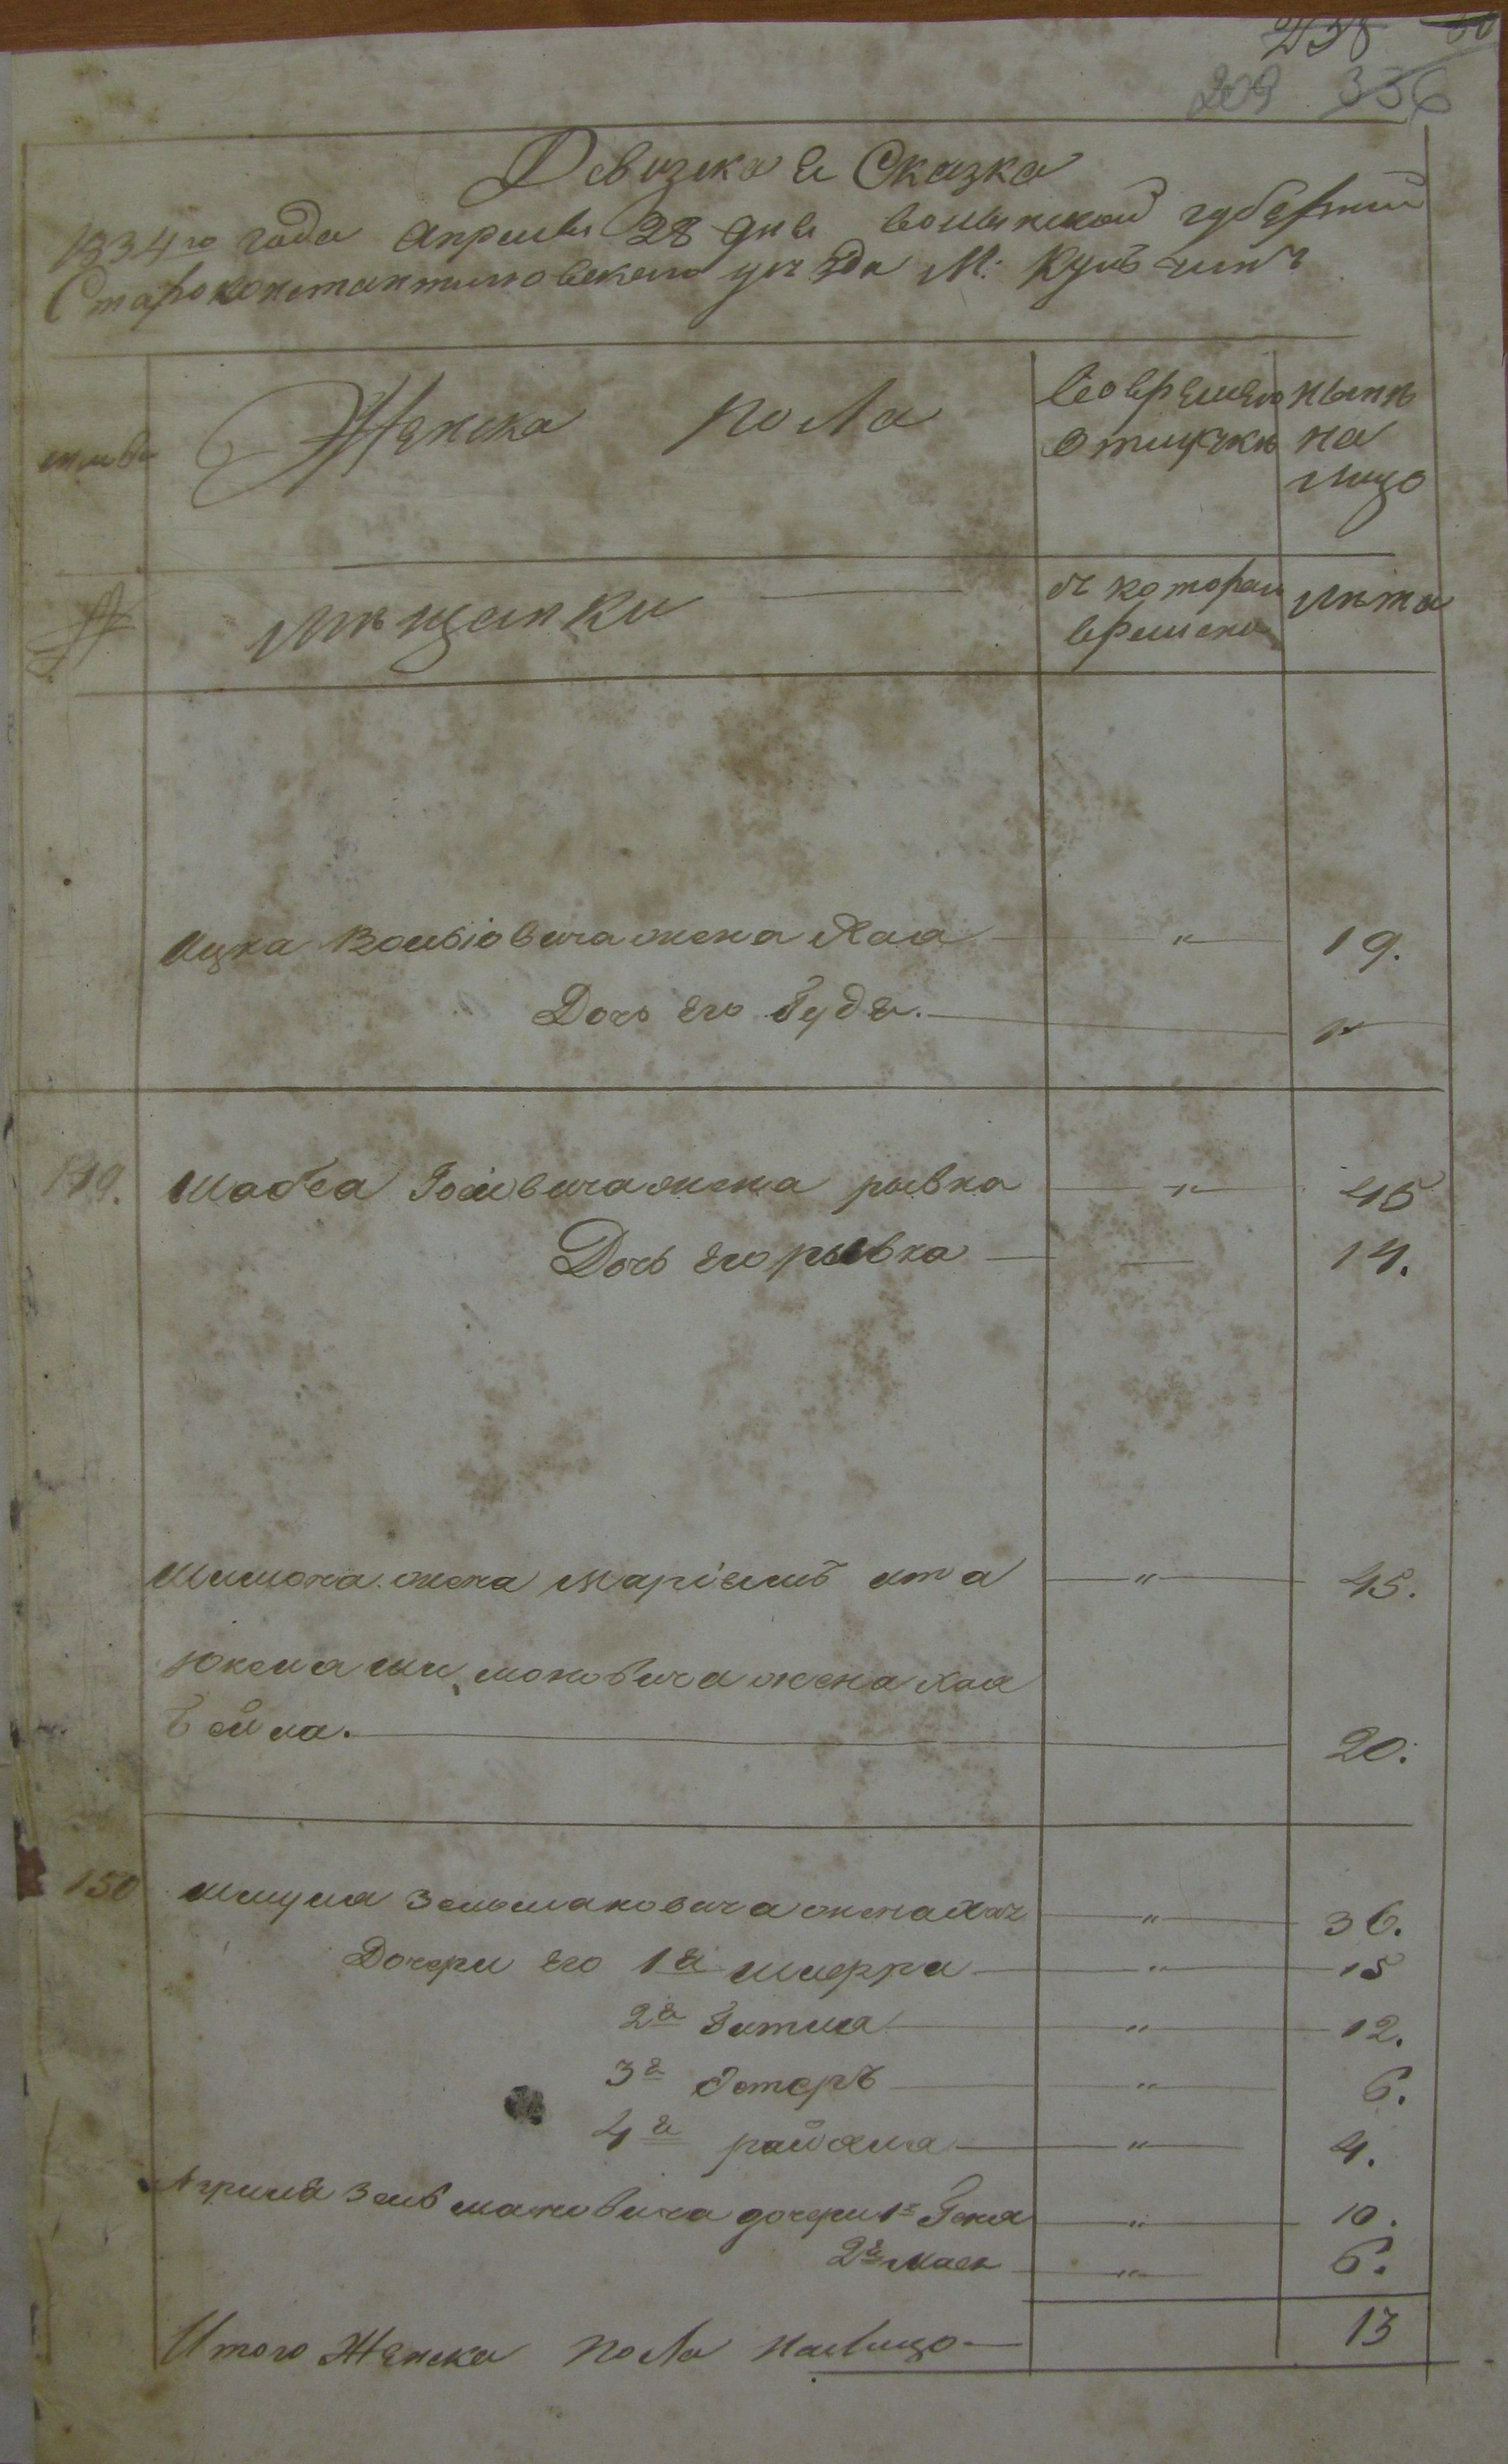 238
209 336
Ревизска я Сказка
1834го года Апреля 28 дня волынской губернии
Староконстантиновского уезда М: Кульчин
Женска пола
во временно отлучке
ныне на лицо
семьи
№
Мѣщанки
съ которого времени
лѣта
Ицка Вольіовича жена Хая " 19.
Дочь его Гудя. "
149. Шабса Іосіовича жена рывка " 45
Дочь его рывка 14.
Шимона жена Маріемъ ита " 45.
Юкела Шимоновича жена хая
Бейла. 20.
150 Шмуля Зельмановича жена Хая " 36.
Дочери его 1я Шифра " 15
2я Гитля " 12.
3я Эстеръ " 6.
4я " 4.
Зельмановича дочери 1я Геня " 10.
2я " 6.
Итого Женска пола Налицо 13